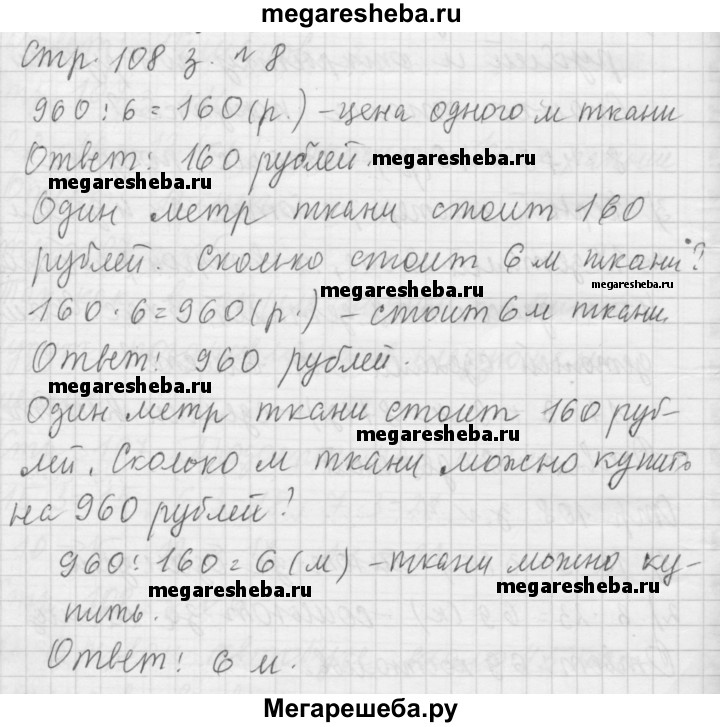 megaresheba.ru
Стр. 108 з. № 8
960 : 6 = 160 (р.) – цена одного м ткани
Ответ: 160 рублей.
megaresheba.ru
megaresheba.ru
Один метр ткани стоит 160
рублей. Сколько стоит 6 м ткани?
megaresheba.ru
megaresheba.ru
160 · 6 = 960 (р.) – стоит 6 м ткани
Ответ: 960 рублей.
megaresheba.ru
Один метр ткани стоит 160 руб-
megaresheba.ru
лей. Сколько м ткани можно купить
на 960 рублей?
960 : 160 = 6 (м) – ткани можно ку-
megaresheba.ru
megaresheba.ru
пить.
Ответ: 6 м.
Мегарешеба.ру